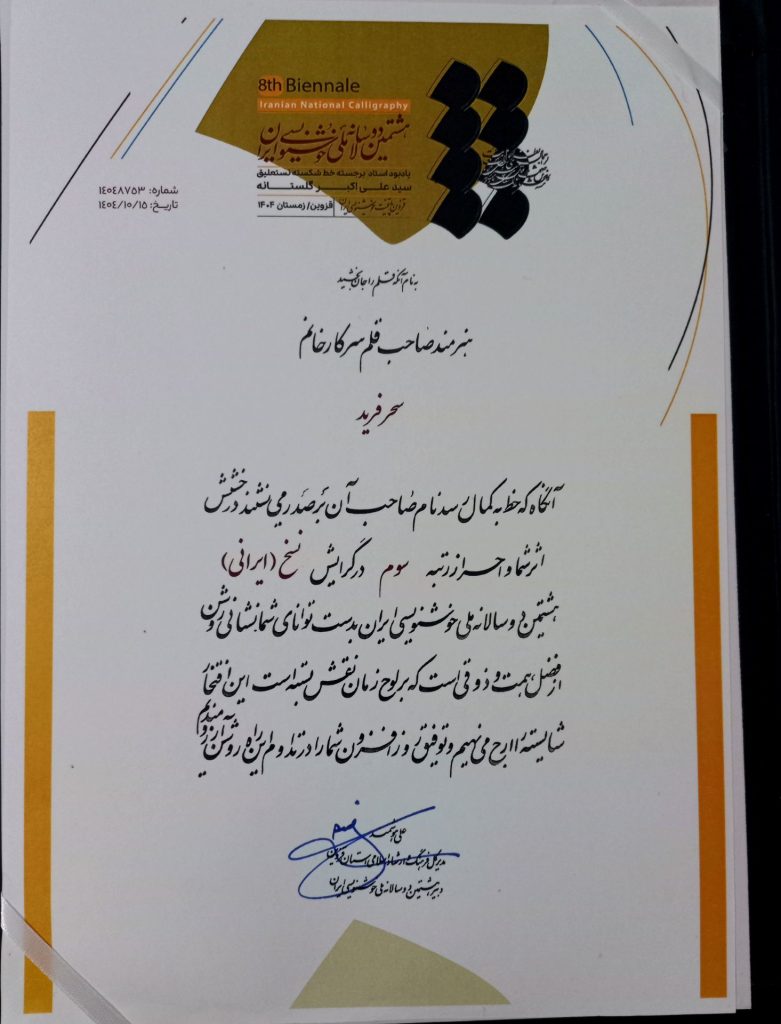 8th Biennale
Iranian National Calligraphy
هشتمین دوسالانه ملی خوشنویسی ایران
یادبود استاد برجسته خط شکسته نستعلیق
سید علی اکبر گلستانه
قزوین پایتخت خوشنویسی ایران | قزوین/ زمستان ۱۴۰۴
شماره: ۱۴۰۴۸۷۵۳
تاریخ: ۱۴۰۴/۱۰/۱۵
به نام آنکه قلم را جان بخشید
هنرمند صاحب قلم سرکار خانم
سحر فرید
آنگاه که خط به کمال رسد نام صاحب آن بر صدر می نشیند درخشش
اثر شما و احراز رتبه سوم در گرایش نسخ (ایرانی)
هشتمین دوسالانه ملی خوشنویسی ایران بدست توانای شما نشانی روشن
از فضل، همت و ذوقی است که بر لوح زمان نقش بسته است این افتخار
شایسته را ارج می نهیم و توفیق روز افزون شما را در تداوم این راه روشن آرزومندیم
علی هوشمند
مدیرکل فرهنگ و ارشاد اسلامی استان قزوین
دبیر هشتمین دوسالانه ملی خوشنویسی ایران